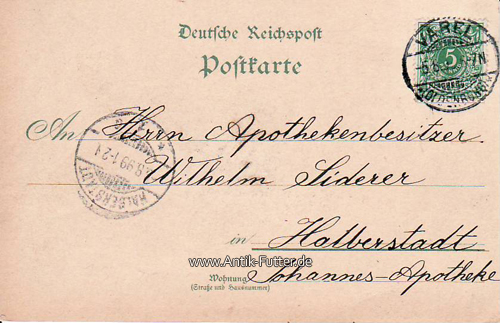 Deutsche Reichspost
Postkarte
VAREL
5
OLDENBURG
An Herrn Apothekenbesitzer
Wilhelm Siderer
HALBERSTADT
in Halberstadt
www.Antik-Futter.de
Wohnung Johannes-Apotheke
(Straße und Hausnummer)